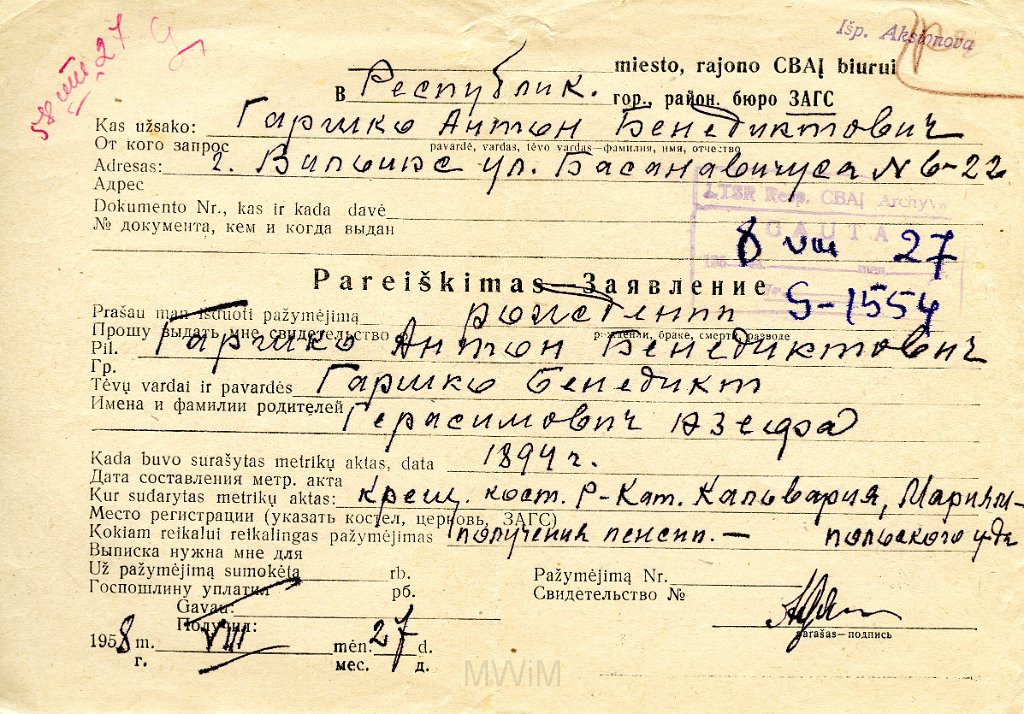 58 VIII 27
Išp. Aksionova
miesto, rajono CBAĮ biurui
В Республик. гор., район. бюро ЗАГС
Kas užsako: Гаршко Антон Бенедиктович
От кого запрос pavardė, vardas, tėvo vardas—фамилия, имя, отчество
Adresas: г. Вильнюс ул. Басанавичуса N 6-22
Адрес
LTSR Resp. CBAĮ Archyvas
Dokumento Nr., kas ir kada davė
GAUTA
№ документа, кем и когда выдан
8 VIII 27
195 mėn.
Pareiškimas—Заявление
G-1554
Prašau man išduoti pažymėjimą рождении
Прошу выдать мне свидетельство о рождении, браке, смерти, разводе
Pil. Гаршко Антон Бенедиктович
Гр.
Tėvų vardai ir pavardės Гаршко Бенедикт
Имена и фамилии родителей Герасимович Юзефа
Kada buvo surašytas metrikų aktas, data 1894 г.
Дата составления метр. акта
Kur sudarytas metrikų aktas: крещ. кост. Р-Кат. Кальвария, Мариям-
Место регистрации (указать костел, церковь, ЗАГС)
Kokiam reikalui reikalingas pažymėjimas получения пенсии. — польского у-да
Выписка нужна мне для
Už pažymėjimą sumokėta rb. Pažymėjimą Nr.
Госпошлину уплатил рб. Свидетельство №
Gavau:
Получил: parašas—подпись
1958 m. VIII mėn. 27 d.
г. мес. д.
MWiM